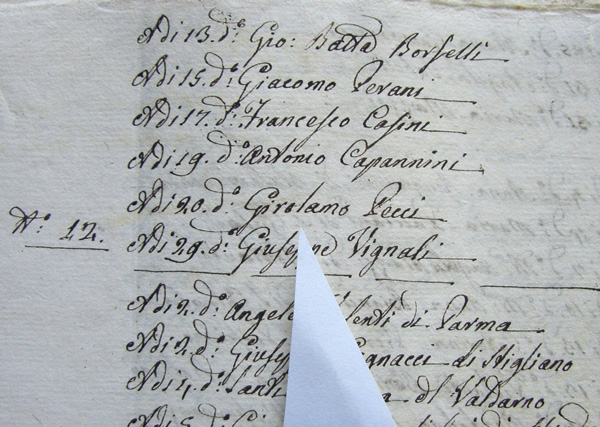 Adi 13. d.º Gio: Batta Borselli
Adi 15. d.º Giacomo Perani
Adi 17. d.º Francesco Casini
Adi 19. d.º Antonio Capannini
Adi 20. d.º Girolamo Pecci
N.º 12. Adi 29. d.º Giuseppe Vignali
Adi 2. d.º Angelo di Parma
Adi 2. d.º di Stigliano
Adi 4. d.º Valdarno
Adi 5. d.º